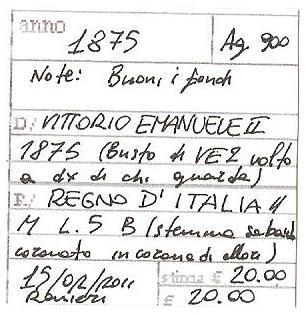 anno
1875 Ag. 900
Note: Buoni i fondi
D/ VITTORIO EMANUELE II
1875 (Busto di VE2 volto
a dx di chi guarda)
R/ REGNO D'ITALIA //
M L. 5 B (stemma sabaudo
coronato in corona di allori)
15/02/2011 stima € 20.00
Ranieri £ 20.00